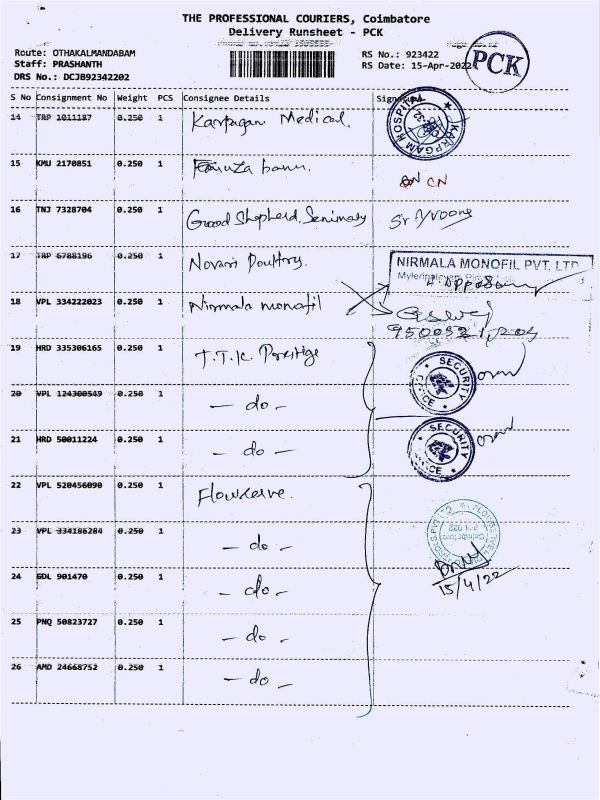 THE PROFESSIONAL COURIERS, Coimbatore
Delivery Runsheet - PCK
Route: OTHAKALMANDABAM
Staff: PRASHANTH
DRS No.: DCJB92342202
RS No.: 923422
RS Date: 15-Apr-2022
PCK
S No Consignment No Weight PCS Consignee Details Signature
14 TRP 1011187 0.250 1 Karpagam Medical.
KARPGAM HOSPITAL
15 KMU 2170851 0.250 1 banu.
CN
16 TNJ 7328704 0.250 1 Good Shepherd. Seminary
17 TRP 6788196 0.250 1 Novam Poultory.
NIRMALA MONOFIL PVT. LTD
18 VPL 334222023 0.250 1 Nirmala monofil
19 HRD 335306165 0.250 1 T.T.K. Prestige
SECURITY
20 VPL 124300549 0.250 1 - do -
21 HRD 50011224 0.250 1 - do -
SECURITY
22 VPL 520456090 0.250 1 Flowserve.
23 VPL 334186284 0.250 1 - do -
24 GDL 901470 0.250 1 - do -
15/4/22
25 PNQ 50823727 0.250 1 - do -
26 AMD 24668752 0.250 1 - do -